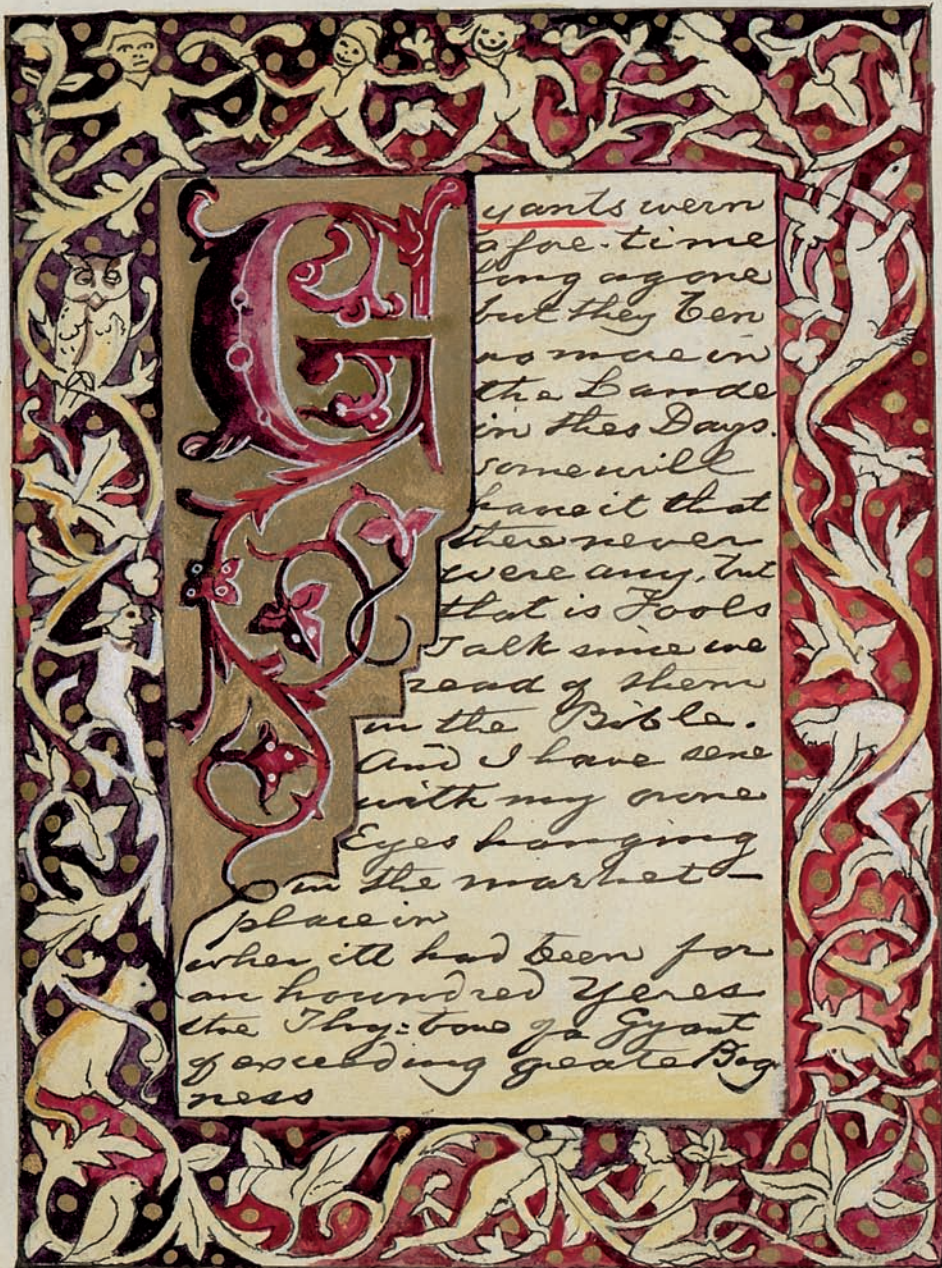 Gyants wern
afore-time
long agone
but they ben
no more in
the Lande
in thes Days.
some will
have it that
there never
were any, but
that is Fools
Talk since we
read of them
in the Bible.
And I have sene
with my owne
Eyes hanging
in the market-
place in
wher itt had been for
an houndred Yeres
the Thy=bone of a Gyant
of exceeding greate Big
ness